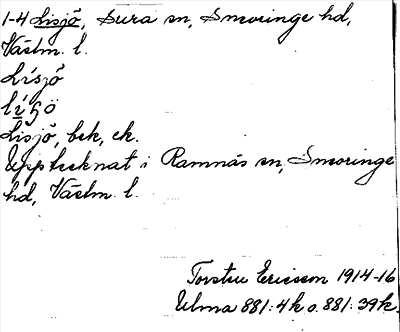 1-4 Lisjö, Sura sn, Snevringe hd,
Västm. l.
Lísjö
lísö
Lisjö, bek, ek.
Upptecknat i Ramnäs sn, Snevringe
hd, Västm. l.
Torsten Ericsson 1914-16
Ulma 881:4k o. 881:39k.